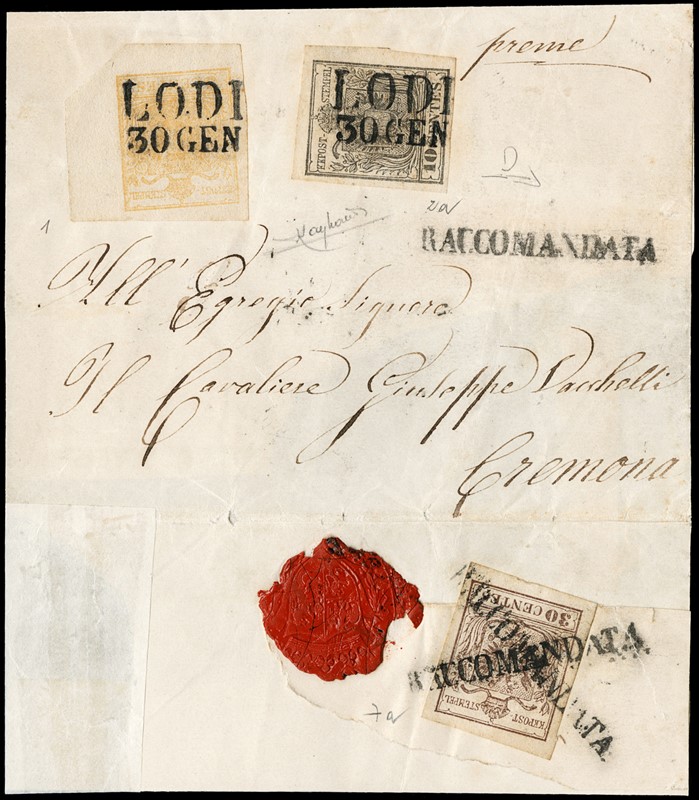 preme
LODI
30 GEN
LODI
30 GEN
KKPOST-STEMPEL
10 CENTES
D
1
va
RACCOMANDATA
All' Egregio Signore
Il Cavaliere Giuseppe Vacchelli
Cremona
30 CENTES
RACCOMANDATA
RACCOMANDATA.
KKPOST-STEMPEL
7a